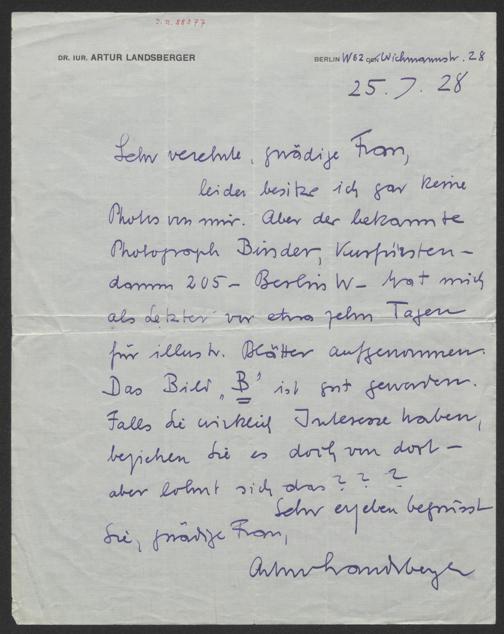 J.N. 88877
DR. IUR. ARTUR LANDSBERGER
BERLIN W62 Wichmannstr. 28
25. 7. 28
Sehr verehrte, gnädige Frau,
leider besitze ich gar keine
Photos von mir. Aber der bekannte
Photograph Binder, Kurfürsten-
damm 205 – Berlin W – hat mich
als Letzter vor etwa zehn Tagen
für illustr. Blätter aufgenommen.
Das Bild „B" ist gut geworden.
Falls Sie wirklich Interesse haben,
beziehen Sie es doch von dort –
aber lohnt sich das? ? ?
Sehr ergeben begrüsst
Sie, gnädige Frau,
Artur Landsberger